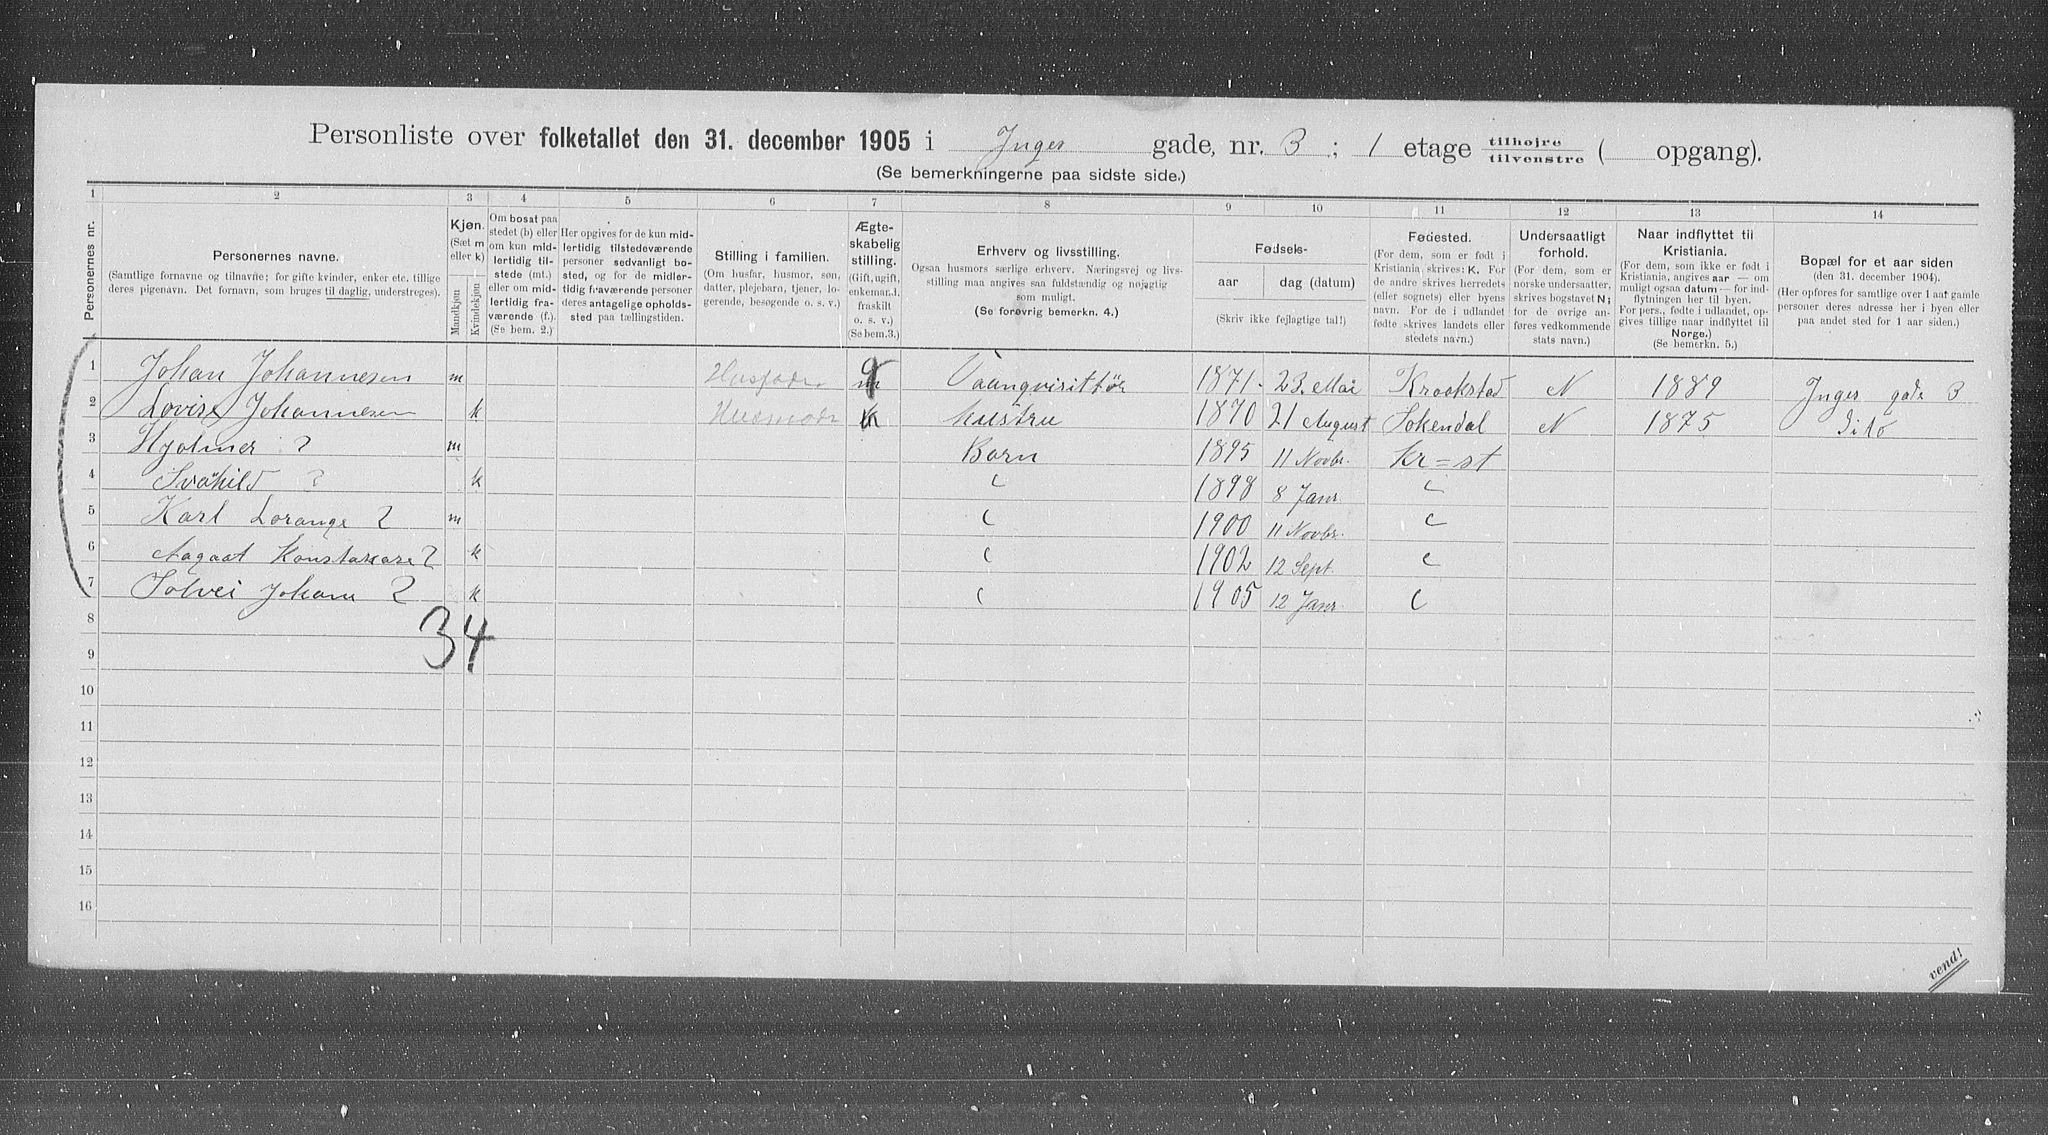 Personliste over folketallet den 31. december 1905 i Inges gade, nr. 3 ; 1 etage tilhøjre tilvenstre ( opgang).
(Se bemerkningerne paa sidste side.)
1 2 3 4 5 6 7 8 9 10 11 12 13 14
Personernes nr.
Personernes navne.
(Samtlige fornavne og tilnavne; for gifte kvinder, enker etc. tillige
deres pigenavn. Det fornavn, som bruges til daglig, understreges).
Kjøn.
(Sæt m
eller k)
Mandkjøn
Kvindekjøn
Om bosat paa
stedet (b) eller
om kun mid-
lertidig til-
stede (mt.)
eller om mid-
lertidig fra-
værende (f.).
(Se bem. 2.)
Her opgives for de kun mid-
lertidig tilstedeværende
personer sedvanligt bo-
sted, og for de midler-
tidig fraværende personer
deres antagelige opholds-
sted paa tællingstiden.
Stilling i familien.
(Om husfar, husmor, søn,
datter, plejebarn, tjener, lo-
gerende, besøgende o. s. v.)
Ægte-
skabelig
stilling.
(Gift, ugift,
enkemand,
fraskilt
o. s. v.)
(Se bem.3.)
Erhverv og livsstilling.
Ogsaa husmors særlige erhverv. Næringsvej og livs-
stilling maa angives saa fuldstændig og nøjagtig
som muligt.
(Se forøvrig bemerkn. 4.)
Fødsels-
aar dag (datum)
(Skriv ikke fejlagtige tal!)
Fødested.
(For dem, som er født i
Kristiania skrives: K. For
de andre skrives herredets
(eller sognets) eller byens
navn. For de i udlandet
fødte skrives landets eller
stedets navn.)
Undersaatligt
forhold.
(For dem, som er
norske undersaatter,
skrives bogstavet N;
for de øvrige an-
føres vedkommende
stats navn.)
Naar indflyttet til
Kristiania.
(For dem, som ikke er født i
Kristiania, angives aar — om
muligt ogsaa datum — for ind-
flytningen her til byen.
For pers., fødte i udlandet, op-
gives tillige naar indflyttet til
Norge.)
(Se bemerkn. 5.)
Bopæl for et aar siden
(den 31. december 1904).
(Her opføres for samtlige over 1 aar gamle
personer deres adresse her i byen eller
paa andet sted for 1 aar siden.)
1 Johan Johannesen m Husfader g 1871. 23. Mai Kraakstad N 1889 Inges gade 3
2 Lovise Johannesen k Husmoder Hustru 1870 21 August Sokendal N 1875 Dito
3 Hjalmer ? m Barn 1895 11 Novbr. Kr=st
4 k " 1898 8 Janr. "
5 Karl Lorange ? m " 1900 11 Novbr. "
6 Aagaat ? k " 1902 12 Sept. "
7 Solvei Johane ? k " 1905 12 Janr. "
34
8
9
10
11
12
13
14
15
16
vend!